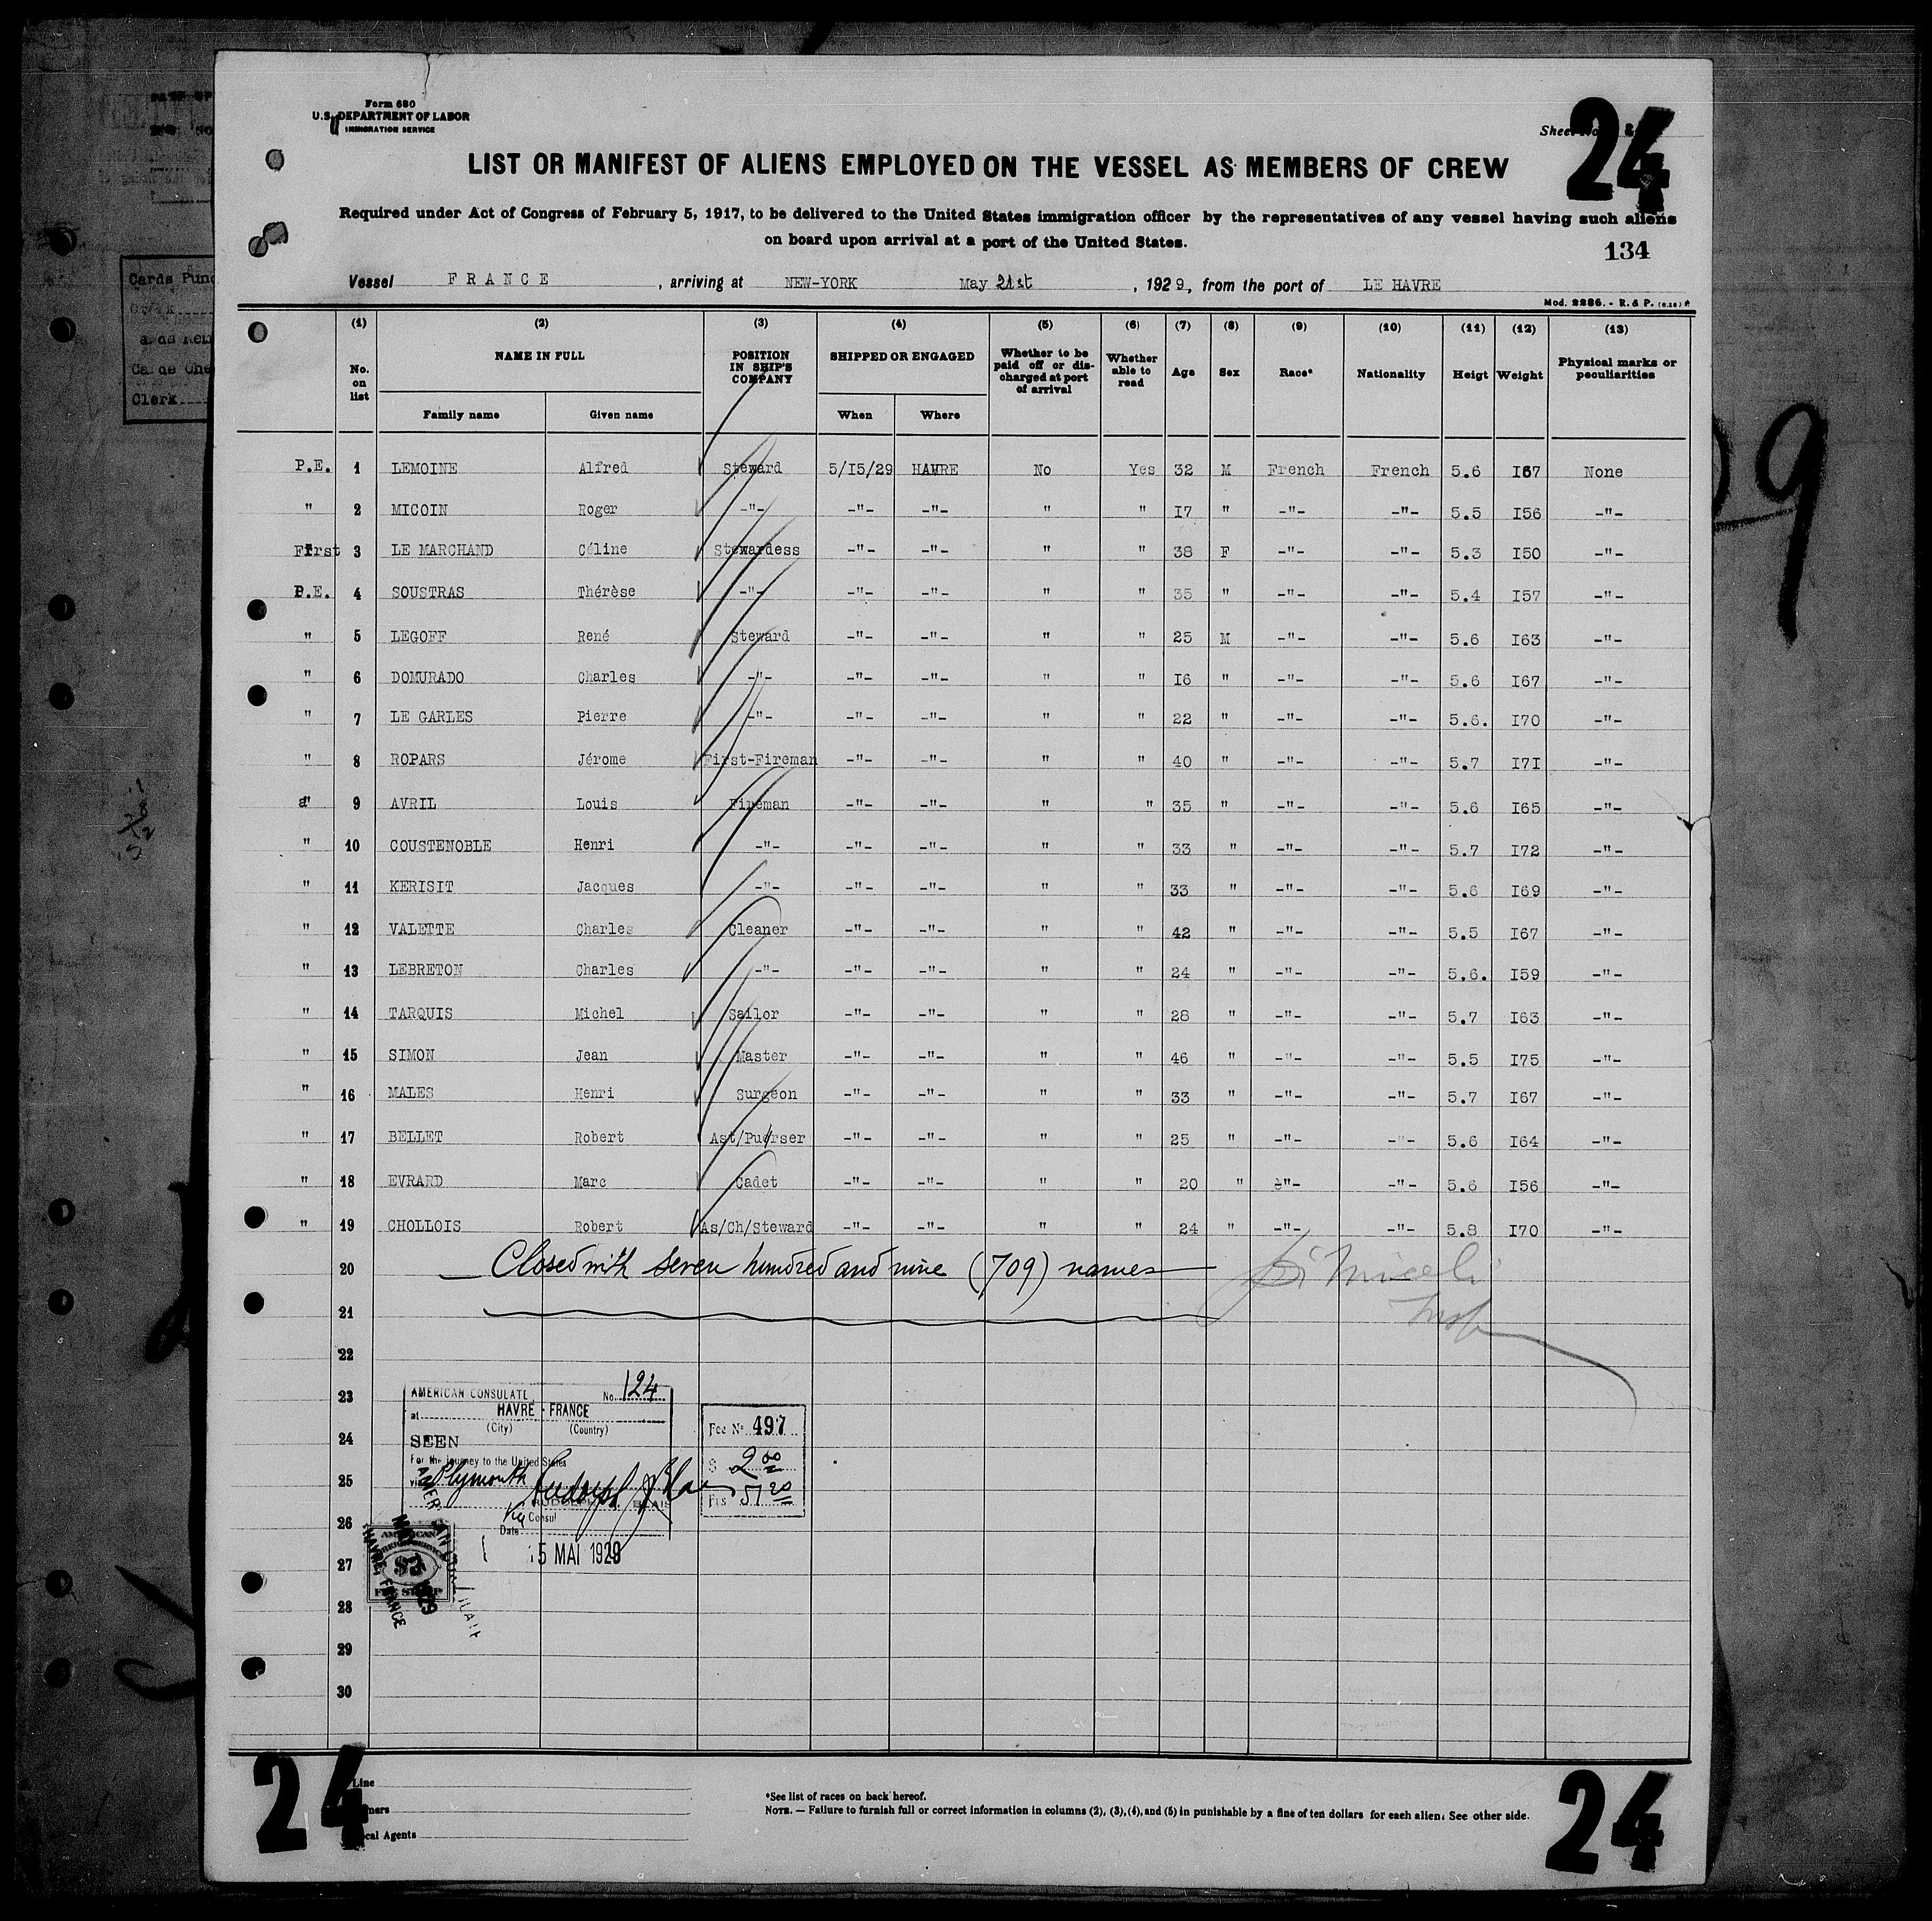 Form 680
U.S. DEPARTMENT OF LABOR
IMMIGRATION SERVICE
24
LIST OR MANIFEST OF ALIENS EMPLOYED ON THE VESSEL AS MEMBERS OF CREW
Required under Act of Congress of February 5, 1917, to be delivered to the United States immigration officer by the representatives of any vessel having such aliens
on board upon arrival at a port of the United States.
134
Vessel FRANCE , arriving at NEW-YORK May 21st , 1929, from the port of LE HAVRE
Mod. 2286. - R. & P.
(1) (2) (3) (4) (5) (6) (7) (8) (9) (10) (11) (12) (13)
No. on list NAME IN FULL POSITION IN SHIP'S COMPANY SHIPPED OR ENGAGED Whether to be paid off or discharged at port of arrival Whether able to read Age Sex Race* Nationality Heigt Weight Physical marks or peculiarities
Family name Given name When Where
P.E. 1 LEMOINE Alfred Steward 5/15/29 HAVRE No Yes 32 M French French 5.6 I67 None
" 2 MICOIN Roger -"- -"- -"- " " I7 " -"- -"- 5.5 I56 -"-
First 3 LE MARCHAND Céline Stewardess -"- -"- " " 38 F -"- -"- 5.3 I50 -"-
P.E. 4 SOUSTRAS Thérèse -"- -"- -"- " " 35 " -"- -"- 5.4 I57 -"-
" 5 LEGOFF René Steward -"- -"- " " 25 M -"- -"- 5.6 I63 -"-
" 6 DOMURADO Charles -"- -"- -"- " " I6 " -"- -"- 5.6 I67 -"-
" 7 LE GARLES Pierre -"- -"- -"- " " 22 " -"- -"- 5.6. I70 -"-
" 8 ROPARS Jérome First-Fireman -"- -"- " " 40 " -"- -"- 5.7 I7I -"-
" 9 AVRIL Louis Fireman -"- -"- " " 35 " -"- -"- 5.6 I65 -"-
" 10 COUSTENOBLE Henri -"- -"- -"- " " 33 " -"- -"- 5.7 I72 -"-
" 11 KERISIT Jacques -"- -"- -"- " " 33 " -"- -"- 5.6 I69 -"-
" 12 VALETTE Charles Cleaner -"- -"- " " 42 " -"- -"- 5.5 I67 -"-
" 13 LEBRETON Charles -"- -"- -"- " " 24 " -"- -"- 5.6. I59 -"-
" 14 TARQUIS Michel Sailor -"- -"- " " 28 " -"- -"- 5.7 I63 -"-
" 15 SIMON Jean Master -"- -"- " " 46 " -"- -"- 5.5 I75 -"-
" 16 MALES Henri Surgeon -"- -"- " " 33 " -"- -"- 5.7 I67 -"-
" 17 BELLET Robert Ast/Pu/rser -"- -"- " " 25 " -"- -"- 5.6 I64 -"-
" 18 EVRARD Marc Cadet -"- -"- " " 20 " -"- -"- 5.6 I56 -"-
" 19 CHOLLOIS Robert As/Ch/Steward -"- -"- " " 24 " -"- -"- 5.8 I70 -"-
20 Closed with seven hundred and nine (709) names
21
22
23
24
25
26
27
28
29
30
AMERICAN CONSULATE No. 124
at HAVRE - FRANCE
(City) (Country)
SEEN
For the journey to the United States
via Plymouth
Consul
Date
15 MAI 1929
Fee No 497
$ 2 00
Frs 51 20
Line
Local Agents
*See list of races on back hereof.
NOTE. — Failure to furnish full or correct information in columns (2), (3), (4), and (5) in punishable by a fine of ten dollars for each alien. See other side.
24
24
Cards Punc
Clerk